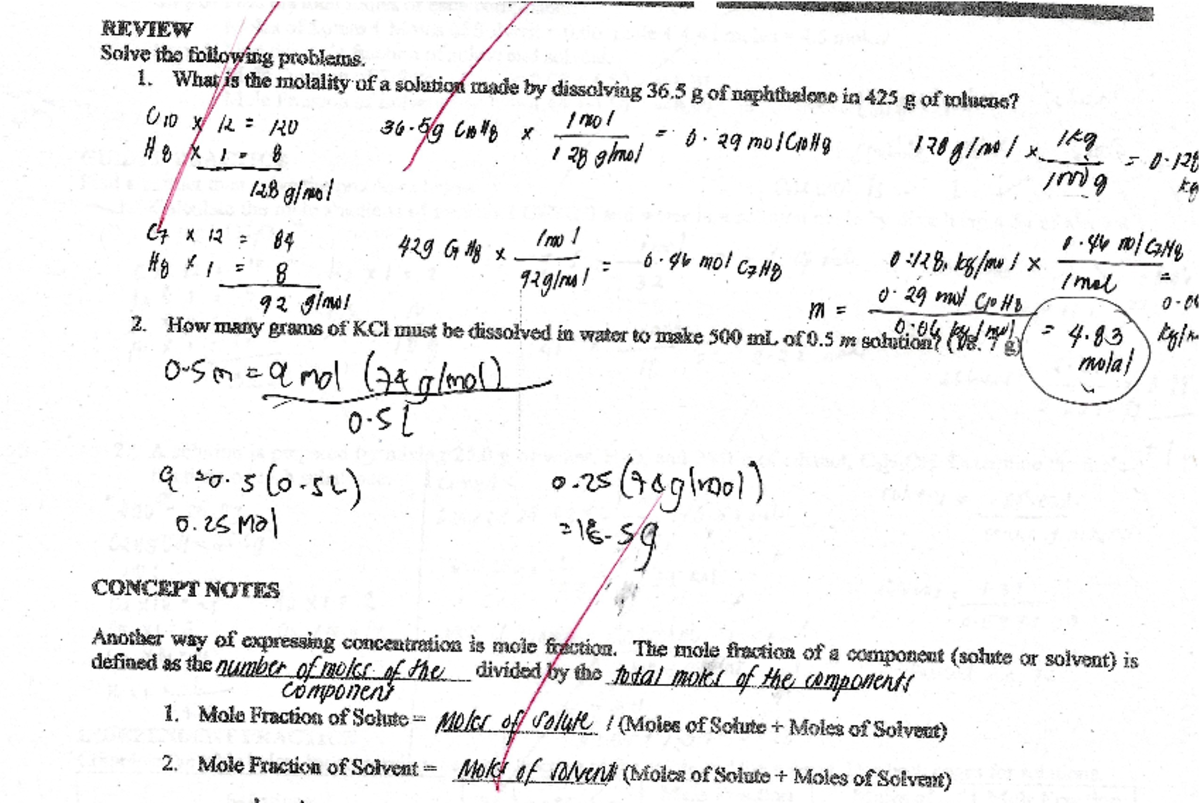 REVIEW
Solve the following problems.
1. What is the molality of a solution made by dissolving 36.5 g of naphthalene in 425 g of toluene?
C10 x 12 = 120
H8 x 1 = 8
128 g/mol
36.5g C10H8 x 1 mol / 128 g/mol = 0.29 mol C10H8
128 g/mol x 1kg / 1000 g = 0.128 kg
C7 x 12 = 84
H8 x 1 = 8
92 g/mol
429 C7H8 x 1mol / 92g/mol = 0.46 mol C7H8
0.128 kg/mol x 0.46 mol C7H8 / 1 mol =
m = 0.29 mol C10H8 / 0.06 kg/mol = 4.83 molal
2. How many grams of KCl must be dissolved in water to make 500 mL of 0.5 m solution? ( ? g)
0.5m = a mol (74 g/mol)
0.5L
a = 0.5 (0.5L)
0.25 mol
0.25 (74g/mol)
=18.5g
CONCEPT NOTES
Another way of expressing concentration is mole fraction. The mole fraction of a component (solute or solvent) is
defined as the number of moles of the component divided by the total moles of the components
1. Mole Fraction of Solute = Moles of solute / (Moles of Solute + Moles of Solvent)
2. Mole Fraction of Solvent = Moles of solvent (Moles of Solute + Moles of Solvent)